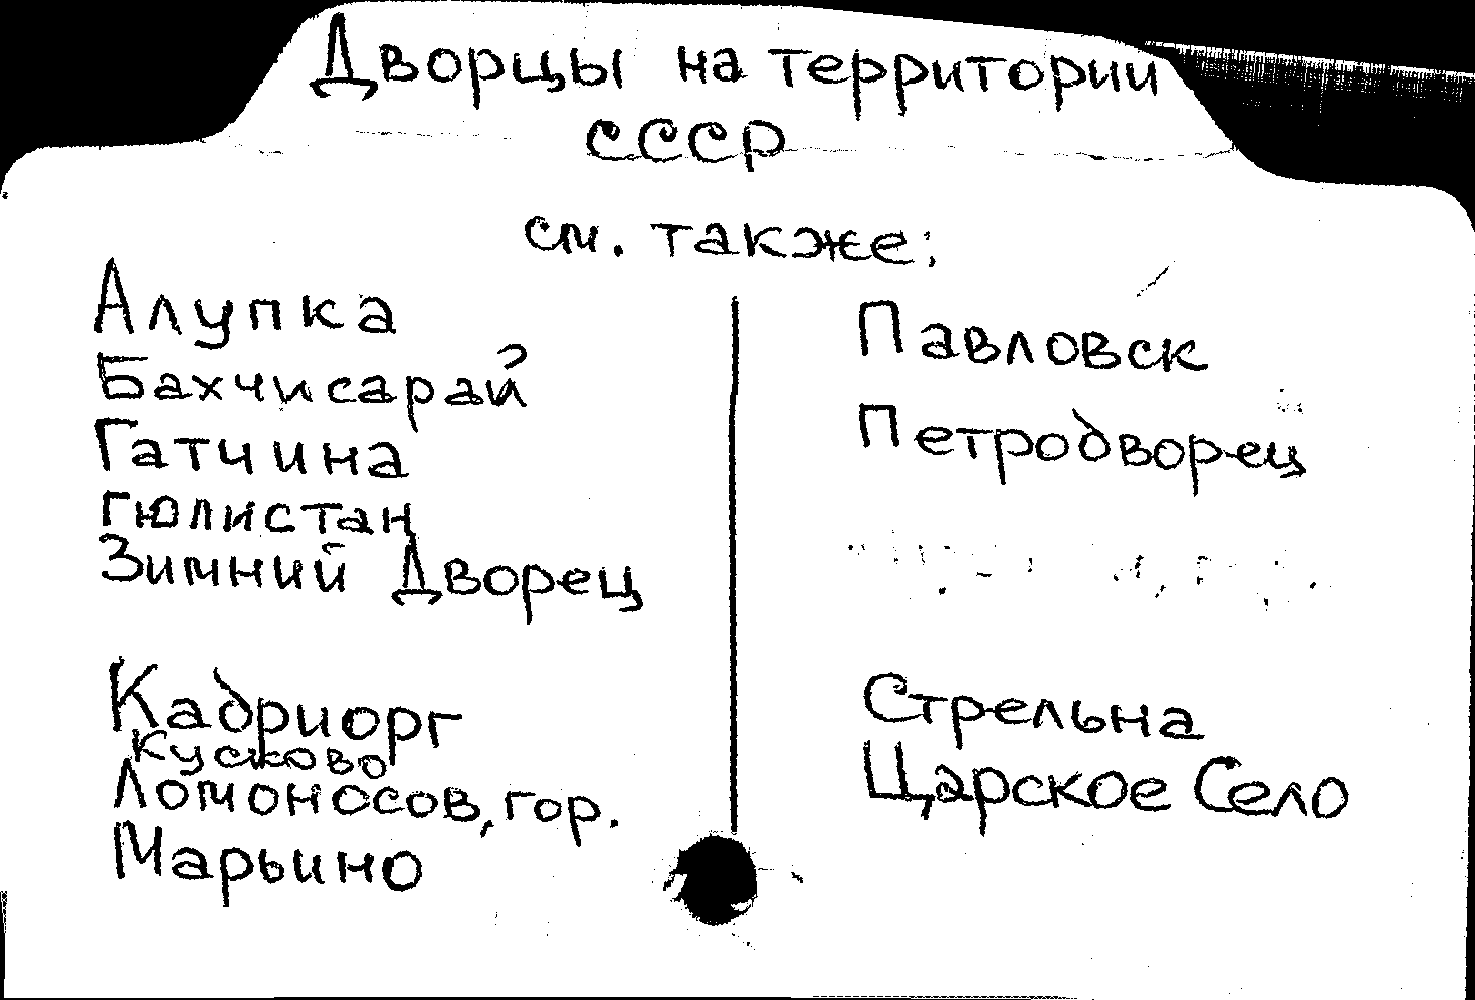 Дворцы на территории
СССР
см. также:
Алупка
Бахчисарай
Гатчина
Гюлистан
Зимний Дворец
Кадриорг
Кусково
Ломоносов, гор.
Марьино
Павловск
Петродворец
Стрельна
Царское Село